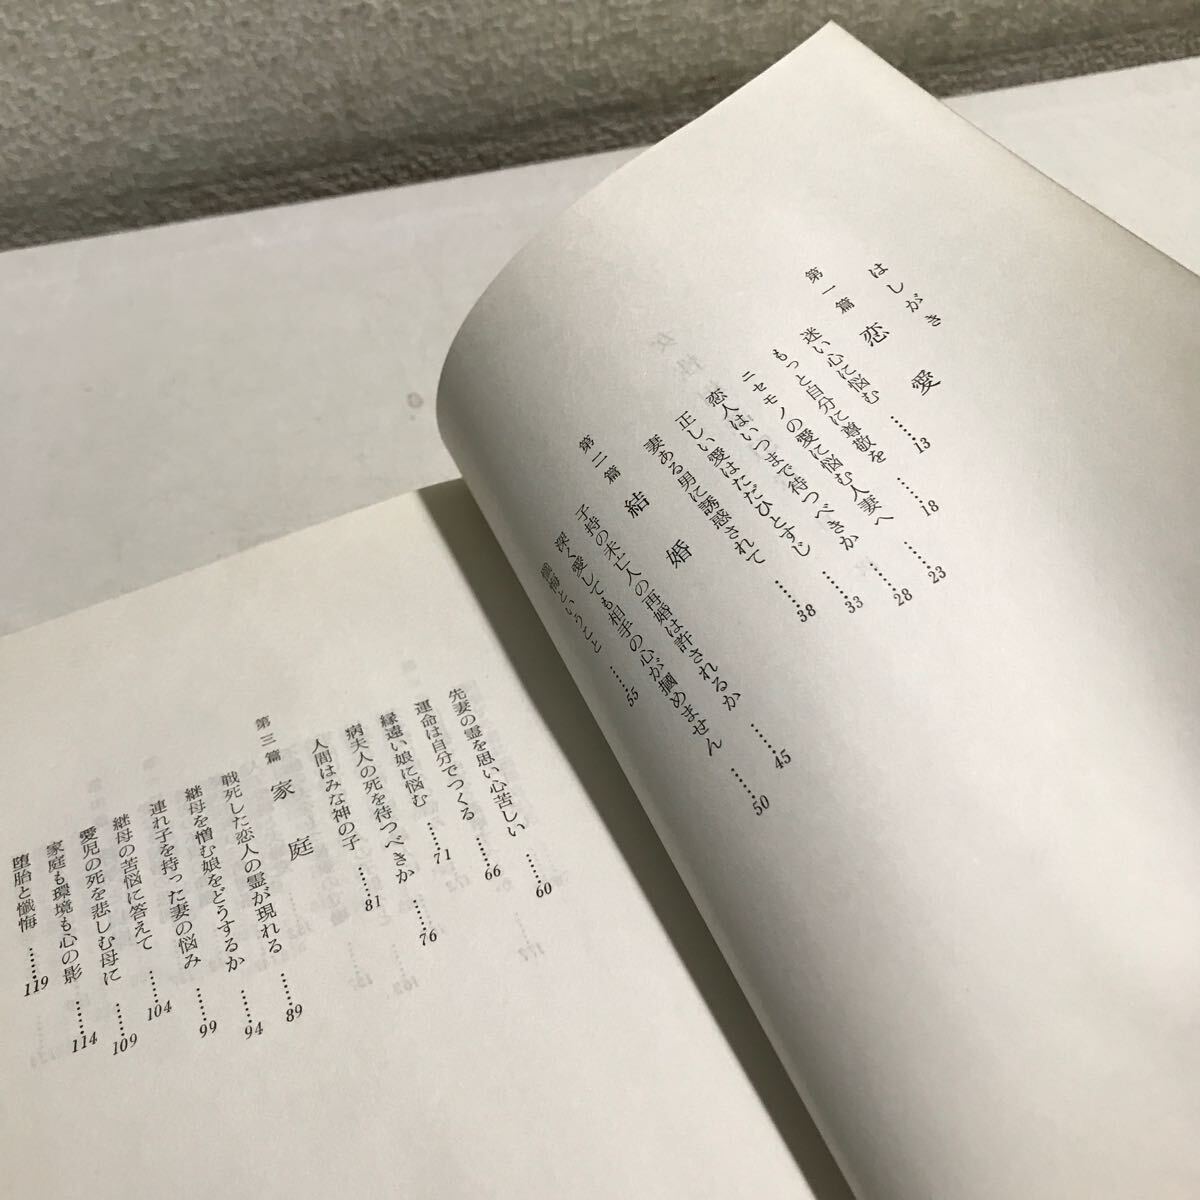 はしがき
第一篇 恋愛
迷い心に悩む……13
もっと自分に尊敬を……18
ニセモノの愛に悩む人妻へ……23
恋人はいつまで待つべきか……28
正しい愛はただひとすじ……33
妻ある男に誘惑されて……38
第二篇 結婚
子持の未亡人の再婚は許されるか……45
深く愛しても相手の心が摑めません……50
懺悔ということ……55
先妻の霊を思い心苦しい……60
運命は自分でつくる……66
縁遠い娘に悩む……71
病夫人の死を待つべきか……76
人間はみな神の子……81
第三篇 家庭
戦死した恋人の霊が現れる……89
継母を憎む娘をどうするか……94
連れ子を持った妻の悩み……99
継母の苦悩に答えて……104
愛児の死を悲しむ母に……109
家庭も環境も心の影……114
堕胎と懺悔……119